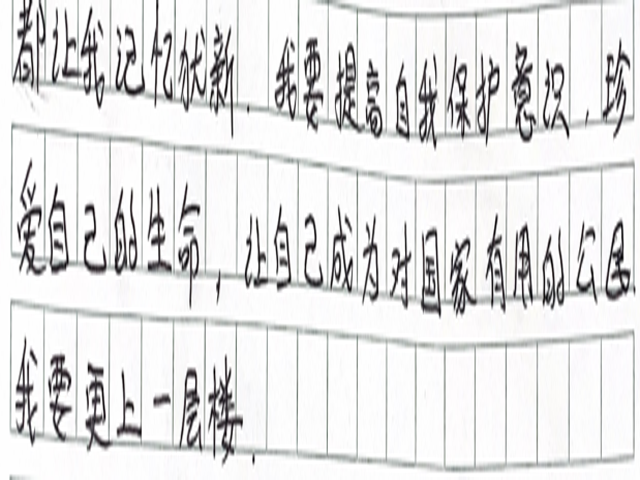 都让我记忆犹新．我要提高自我保护意识，珍
爱自己的生命，让自己成为对国家有用的公民．
我要更上一层楼．